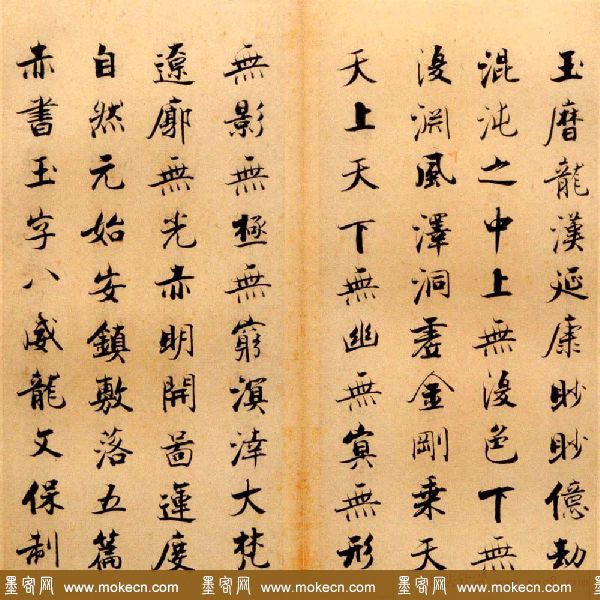 玉曆龍漢延康眇眇億劫
混沌之中上無復色下無
復淵風澤洞虛金剛乘天
天上天下無幽無冥無形
無影無極無窮溟涬大梵
遼廓無光赤明開圖運度
自然元始安鎮敷落五篇
赤書玉字八威龍文保制
墨客网 www.mokecn.com 墨客网 www.mokecn.com 墨客网 www.mokecn.com